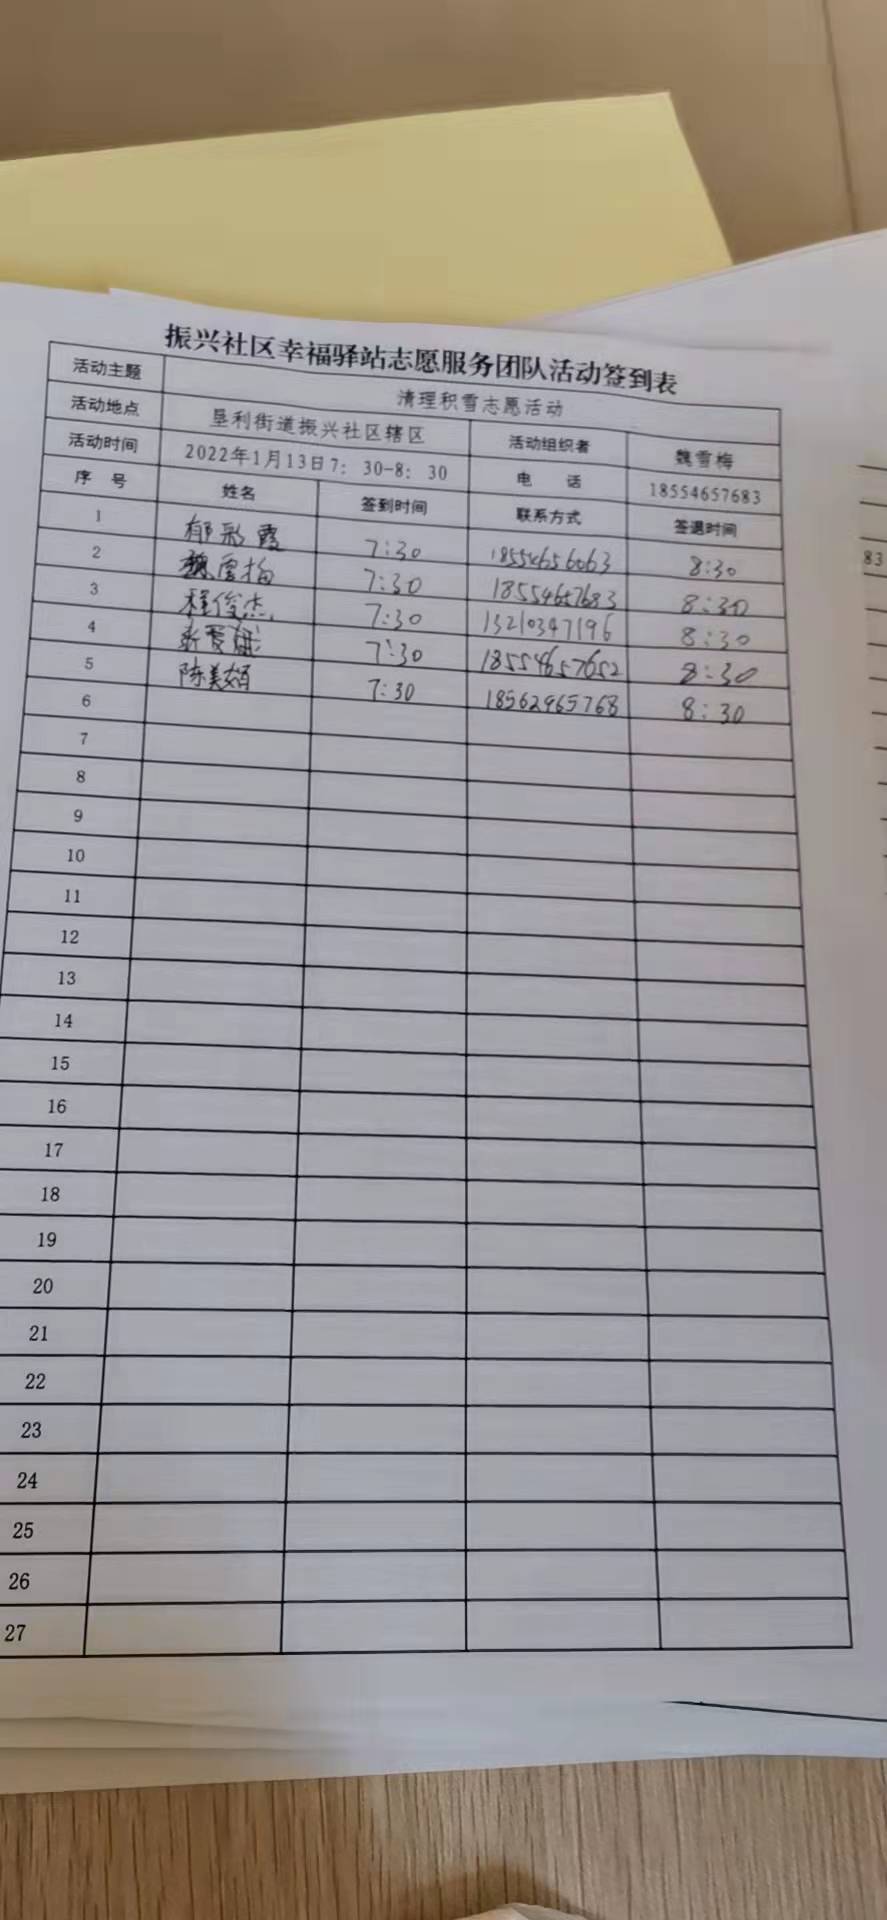 振兴社区幸福驿站志愿服务团队活动签到表
活动主题 清理积雪志愿活动
活动地点 垦利街道振兴社区辖区 活动组织者 魏雪梅
活动时间 2022年1月13日7：30-8：30 电 话 18554657683
序 号 姓名 签到时间 联系方式 签退时间
1 郁彩霞 7:30 18554656063 8:30
2 魏雪梅 7:30 18554657683 8:30
3 程俊杰 7:30 13210347196 8:30
4 7:30 18554657652 8:30
5 陈美娟 7:30 18562965768 8:30
6
7
8
9
10
11
12
13
14
15
16
17
18
19
20
21
22
23
24
25
26
27
83